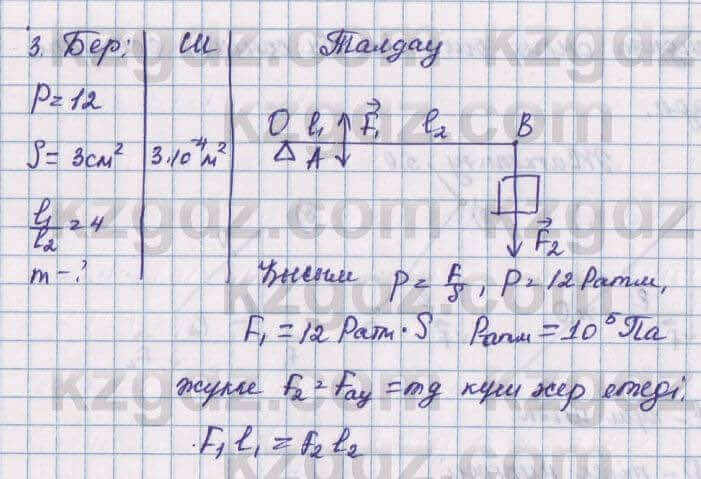 3. Бер:
ШЖ
Талдау
P = 12
S = 3 см²
3·10⁻⁴ м²
l₁/l₂ = 4
m - ?
O l₁ F⃗₁ l₂ B
A
F⃗₂
Қысым P = F/S, P = 12 Pатм,
F₁ = 12 Pатм · S Pатм = 10⁵ Па
жүкке F₂ = Fау = mg күш әсер етеді.
F₁ l₁ = F₂ l₂
kzgdz.com